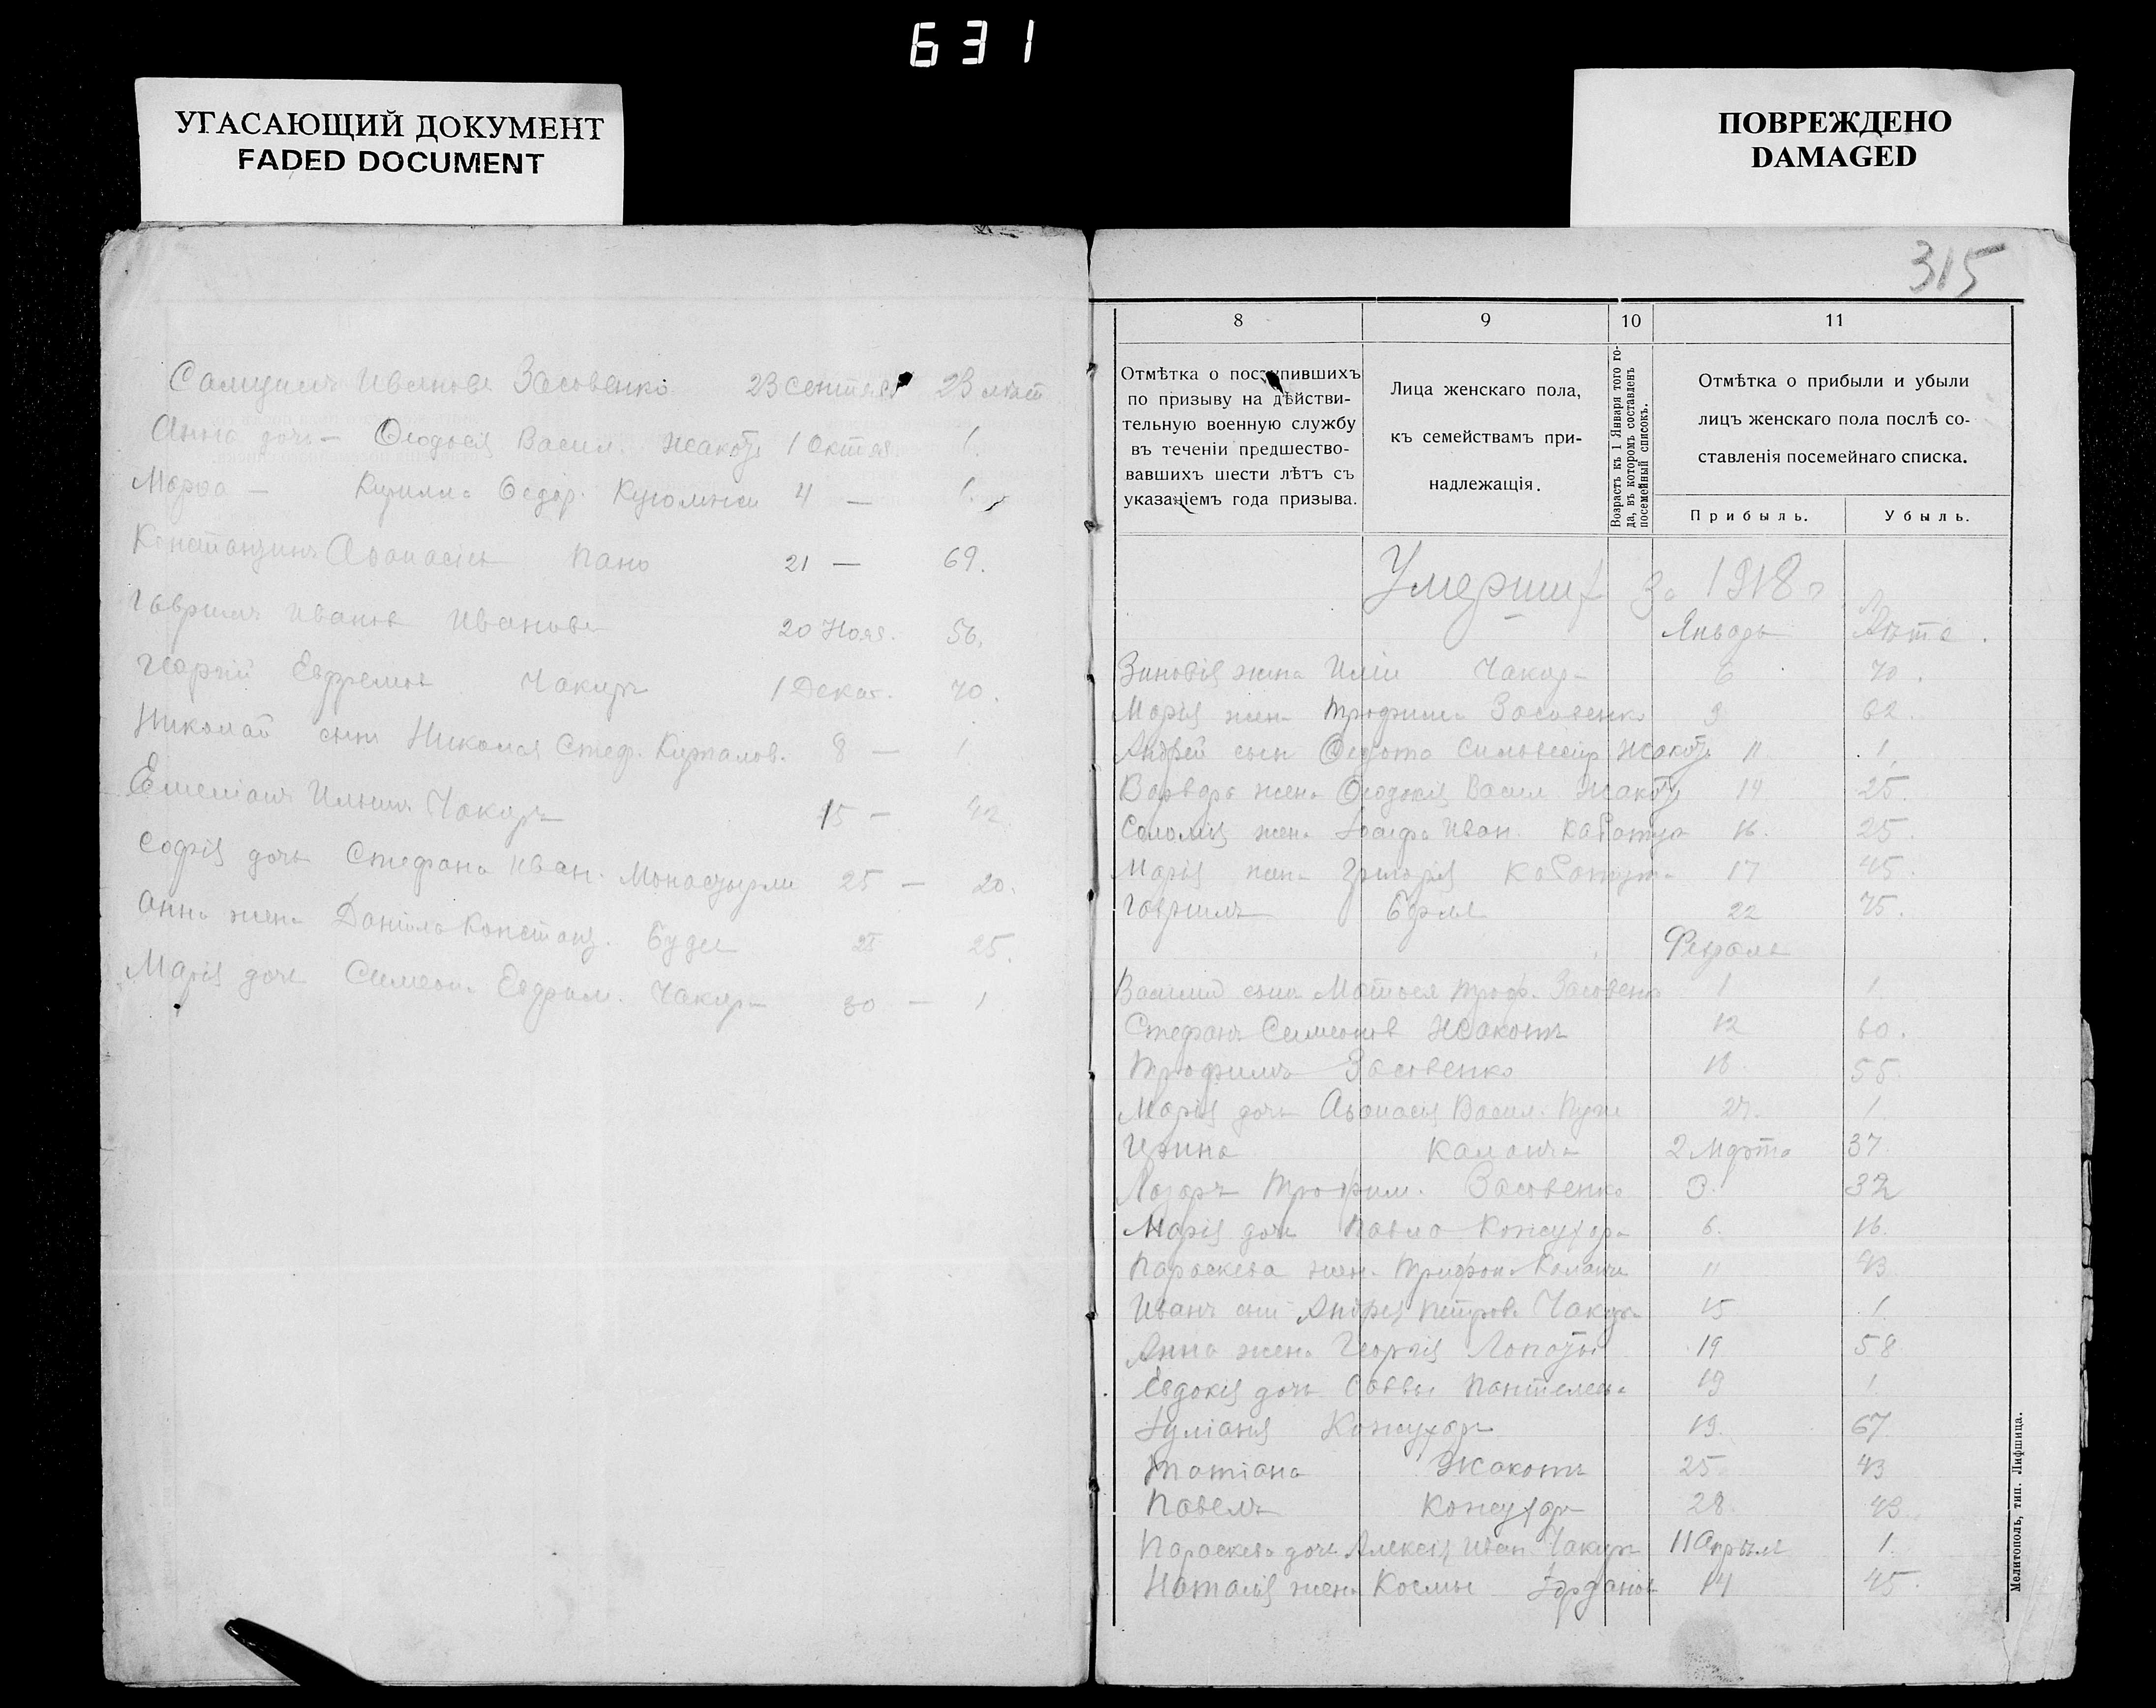 631
УГАСАЮЩИЙ ДОКУМЕНТ
FADED DOCUMENT
ПОВРЕЖДЕНО
DAMAGED
Самуилъ Иванов Засовенко 23 Сентяб 23 лѣт
Анна дочь — Ѳеодосія Васил. Жакотъ 1 Октяб 1.
Марѳа — Кирилла Ѳедор. 4 — 1.
Константинъ Аѳанасіев Пано 21 — 69.
Гавриилъ Иванов Иванов 20 Нояб. 56.
Георгій Евфремов Чакиръ 1 Декаб. 70.
Николай сынъ Николая Стеф. 8 — 1
Емеліанъ Ильинъ Чакиръ 15 — 42.
Софія дочь Стефана Иван. Монастырли 25 — 20.
Анна жена Даніила Констант. 25 25.
Марія дочь Симеона Чакиръ 30 — 1
315
8 9 10 11
Отмѣтка о поступившихъ
по призыву на дѣйстви-
тельную военную службу
въ теченіи предшество-
вавшихъ шести лѣтъ съ
указаніемъ года призыва.
Лица женскаго пола,
къ семействамъ при-
надлежащія.
Возрастъ къ 1 Января того го-
да, въ которомъ составленъ
посемейный списокъ.
Отмѣтка о прибыли и убыли
лицъ женскаго пола послѣ со-
ставленія посемейнаго списка.
Прибыль. Убыль.
Умерших за 1918 г
Январь Лѣта.
Зиновія жена Иліи Чакир 6 70.
Марія жена Трофима Засовенко 9 62.
Андрей сынъ Ѳедота Сильвестр Жакотъ 11 1.
Варвара жена Ѳеодосія Васил Жакотъ 14 25.
Саломія жена Іосифа Иван. 16. 25.
Марія жена Григорія 17 45.
Гавриилъ 22 75.
Февраля
Василій сынъ Матѳея Троф. Засовенко 1 1.
Стефанъ Симеонов Жакотъ 12 60.
Трофимъ Засовенко 16. 55.
Марія дочь Аѳанасія Васил. 27. 1
Ирина Каланча 2 Марта 37.
Лазарь Трофим. Засовенко 3. 32
Марія дочь Павла Кожухаръ 6. 16.
Параскева жен. Трифона Каланчи 11 43
Иванъ сын Андрея Петрова Чакиръ 15 1
Анна жена Георгія Лопаты 19 58
Евдокія дочь Саввы Пантелеева 19 1
Іуліанія Кожухаръ 19. 67.
Татіана Жакотъ 25 43
Павелъ Кожухаръ 28. 43.
Параскева дочь Алексія Иван Чакиръ 11 Апрѣля 1.
Наталія жена Космы Іорданов 14 45.
Мелитополь, тип. Лифшица.